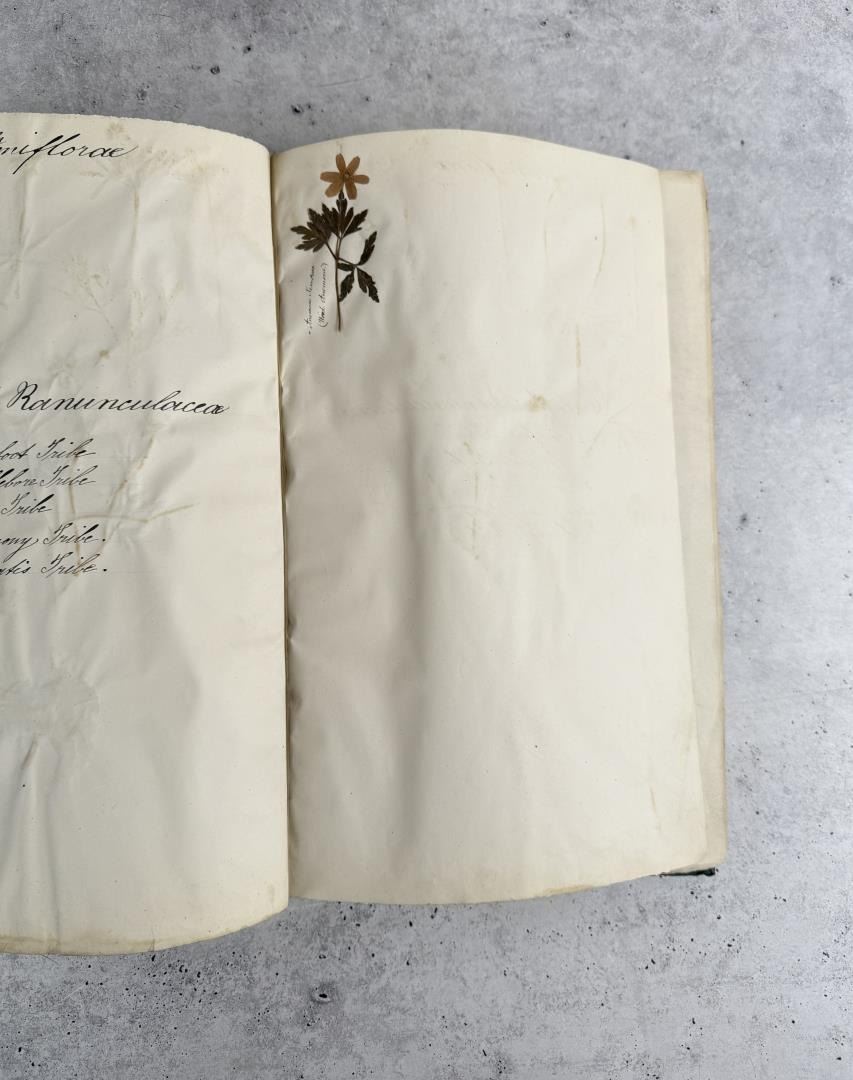 niflorae
Ranunculaceæ
foot Tribe
lebore Tribe
Tribe
ony Tribe.
atis Tribe.
Anemone Nemorosa
(Wood Anemone)